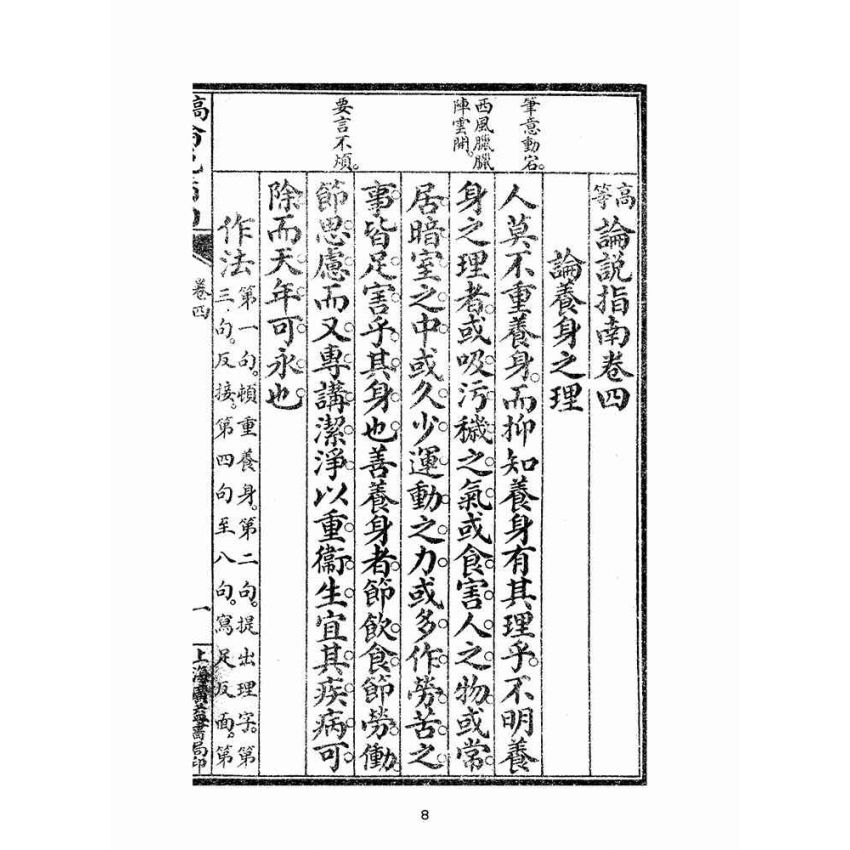 高等論說指南卷四
論養身之理
筆意動宕。
人莫不重養身。而抑知養身有其理乎。不明養
西風臘臘
陣雲開。
身之理者。或吸污穢之氣。或食害人之物。或常
居暗室之中。或久少運動之力。或多作勞苦之
事。皆足害乎其身也。善養身者。節飲食。節勞働。
要言不煩。
節思慮。而又專講潔淨。以重衞生。宜其疾病可
除。而天年可永也。
作法
第一句。頓重養身。第二句。提出理字。第
三句。反接。第四句至八句。寫足反面。第
卷四
一
上海廣益書局印
8